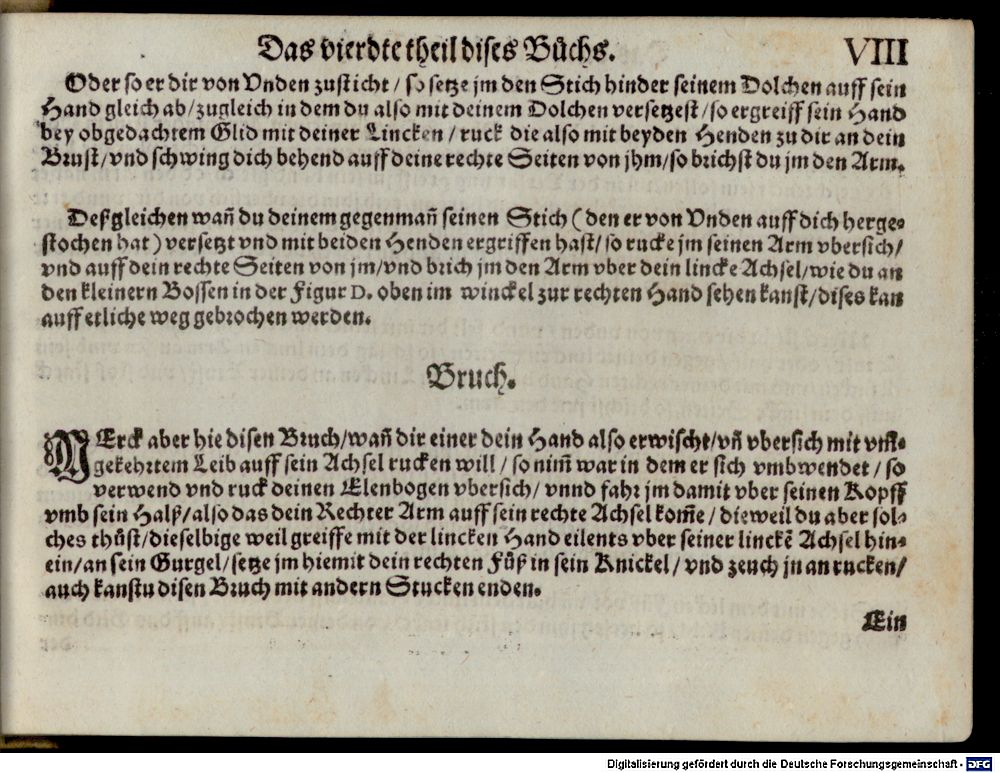 Das vierdte theil dises Bůchs. VIII
Oder so er dir von Vnden zusticht / so setze jm den Stich hinder seinem Dolchen auff sein
Hand gleich ab/zugleich in dem du also mit deinem Dolchen versetzest/so ergreiff sein Hand
bey obgedachtem Glid mit deiner Lincken / ruck die also mit beyden Henden zu dir an dein
Brust/vnd schwing dich behend auff deine rechte Seiten von jhm/so brichst du jm den Arm.
Deßgleichen wañ du deinem gegenmañ seinen Stich (den er von Vnden auff dich herge-
stochen hat) versetzt vnd mit beiden Henden ergriffen hast/so rucke jm seinen Arm vbersich/
vnd auff dein rechte Seiten von jm/vnd brich jm den Arm vber dein lincke Achsel/wie du an
den kleinern Bossen in der Figur D. oben im winckel zur rechten Hand sehen kanst/dises kan
auff etliche weg gebrochen werden.
Bruch.
MErck aber hie disen Bruch/wañ dir einer dein Hand also erwischt/vñ vbersich mit vm̃-
gekehrtem Leib auff sein Achsel rucken will / so nim̃ war in dem er sich vmbwendet / so
verwend vnd ruck deinen Elenbogen vbersich/ vnnd fahr jm damit vber seinen Kopff
vmb sein Halß/also das dein Rechter Arm auff sein rechte Achsel kom̃e / dieweil du aber sol-
ches thůst/dieselbige weil greiffe mit der lincken Hand eilents vber seiner linckẽ Achsel hin-
ein/an sein Gurgel/setze jm hiemit dein rechten Fůß in sein Knickel/ vnd zeuch jn an rucken/
auch kanstu disen Bruch mit andern Stucken enden.
Ein
Digitalisierung gefördert durch die Deutsche Forschungsgemeinschaft - DFG